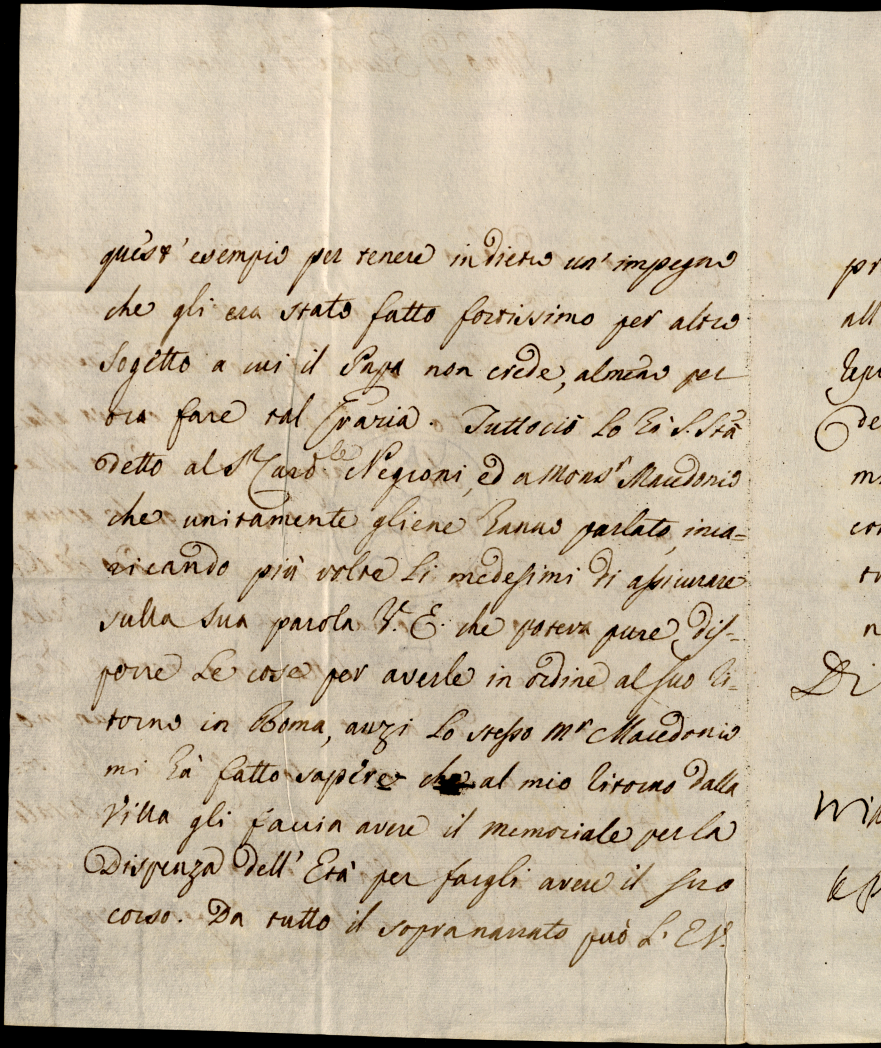 quest' esempio per tenere indietro un' impegno
che gli era stato fatto fortissimo per altro
Sogetto a cui il Papa non crede, almeno per
ora fare tal Grazia. Tuttociò Lo hà S. Stà
detto al Sr. Card.le Negroni, ed a Monsr. Macedonio
che unitamente gliene hanno parlato, inca=
ricando più volte Li medesimi di assicurare
sulla Sua parola V. E. che poteva pure dis=
porre Le cose per averle in ordine al suo Ri=
torno in Roma, anzi Lo stesso Mr. Macedonio
mi hà fatto sapere che al mio Ritorno dalla
Villa gli faccia avere il Memoriale per la
Dispenza dell' Età per fargli avere il suo
corso. Da tutto il sopranarrato può L' E V.
pr
all
de
m
n
Di